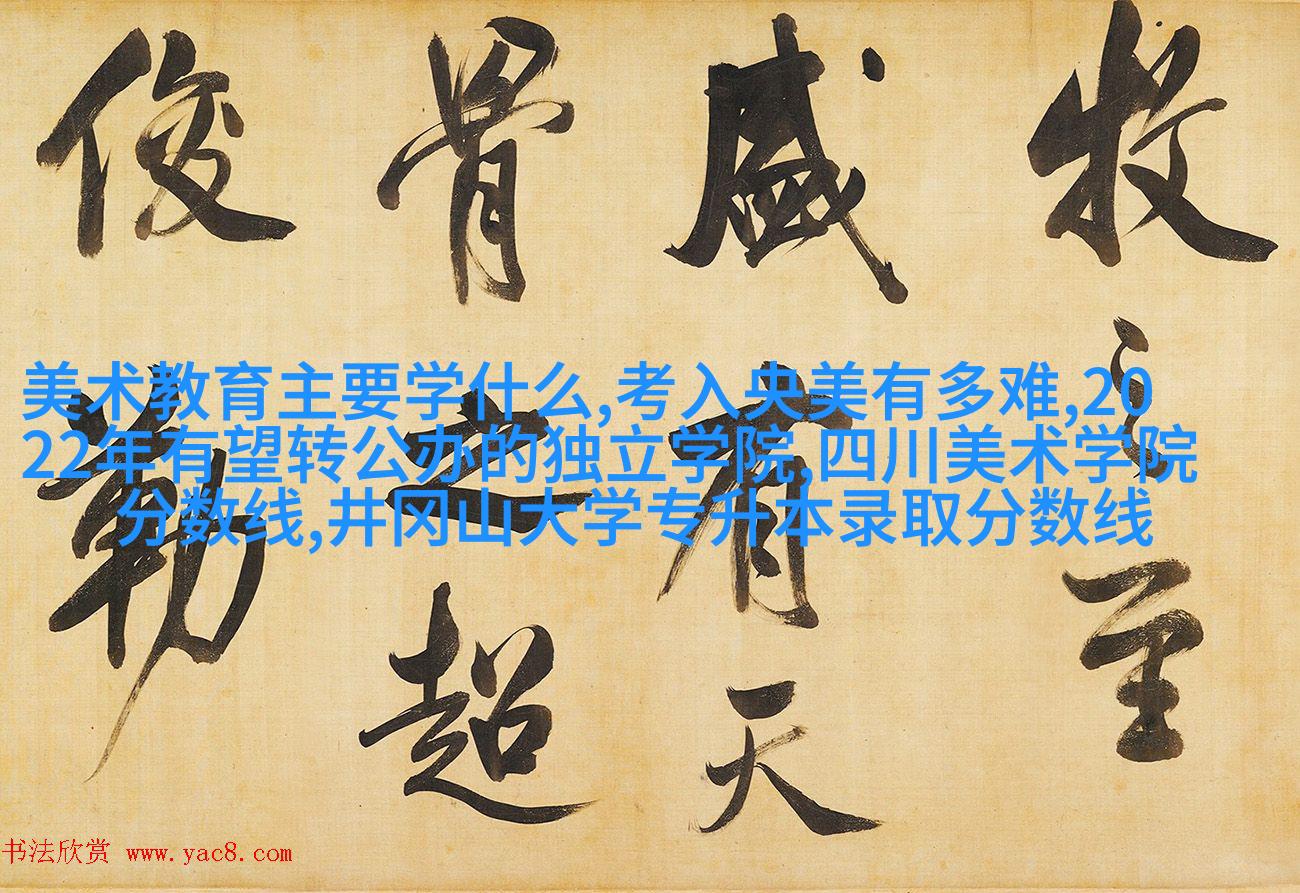 牧之至
盛有天
骨之超
俊勒
美术教育主要学什么,考入央美有多难,20
22年有望转公办的独立学院,四川美术学院
分数线,井冈山大学专升本录取分数线
书法欣赏 www.yac8.com